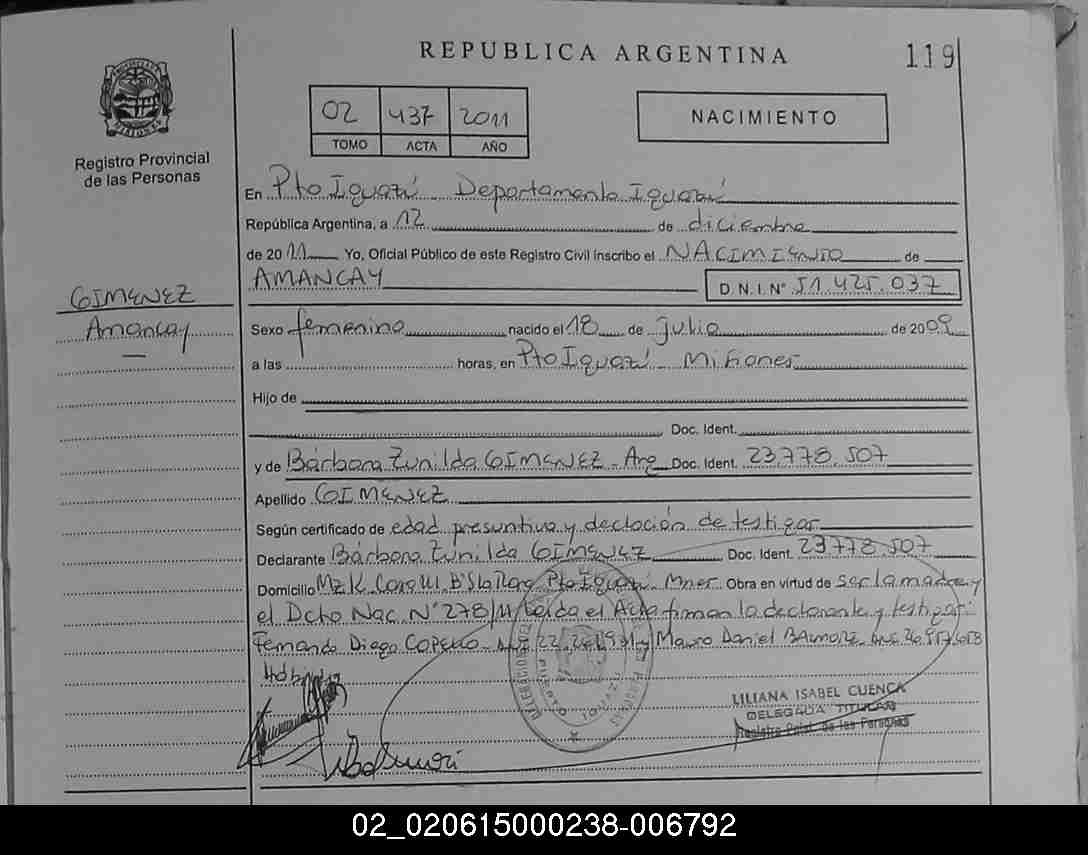 REPUBLICA ARGENTINA
119
Registro Provincial
de las Personas
02 437 2011
TOMO ACTA AÑO
NACIMIENTO
En Pto Iguazú Departamento Iguazú
República Argentina, a 12 de diciembre
de 2011 Yo, Oficial Público de este Registro Civil inscribo el NACIMIENTO de
AMANCAY
D.N.I. N° 51.425.037
GIMENEZ
Amancay
Sexo femenino nacido el 18 de julio de 2009
a las horas, en Pto Iguazú - Misiones
Hijo de
Doc. Ident.
y de Bárbara Zunilda GIMENEZ - Arg Doc. Ident. 23.778.507
Apellido GIMENEZ
Según certificado de edad presuntiva y declación de testigos
Declarante Bárbara Zunilda GIMENEZ Doc. Ident. 23778.507
Domicilio Mz K Pto Iguazú Mnes Obra en virtud de ser la madre y
el Dcto Nac. N° 278/11 Leída el Acta firman la declarante y testigos:
Fernando Diego y Mauro Daniel
LILIANA ISABEL CUENCA
DELEGADA TITULAR
Registro Pcial. de las Personas
02_020615000238-006792